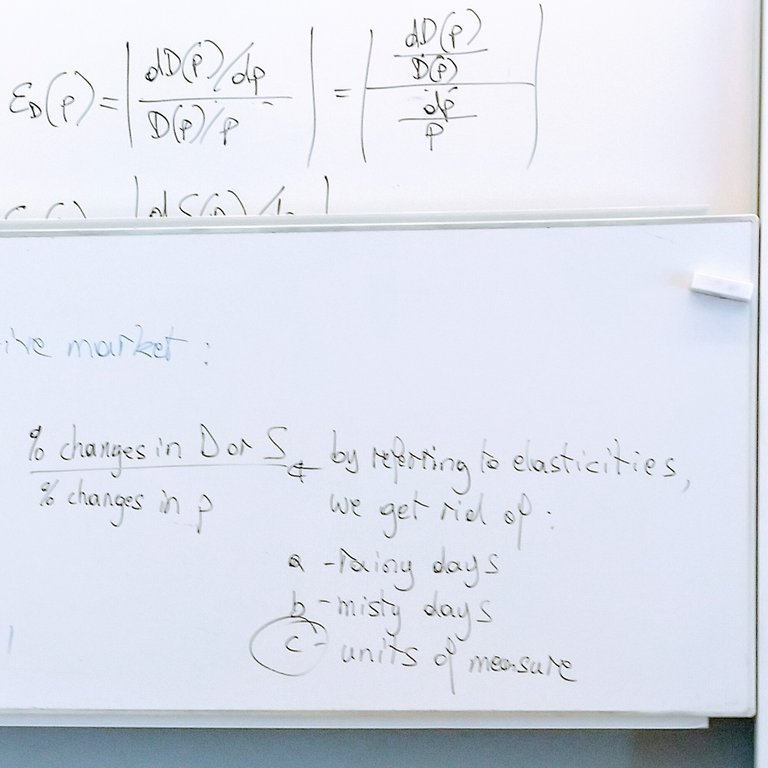 ε_D(p) = | dD(p)/dp / D(p)/p | = | dD(p)/D(p) / dp/p |
market :
% changes in D or S
% changes in p
by referring to elasticities,
we get rid of :
a - rainy days
b - misty days
c - units of measure